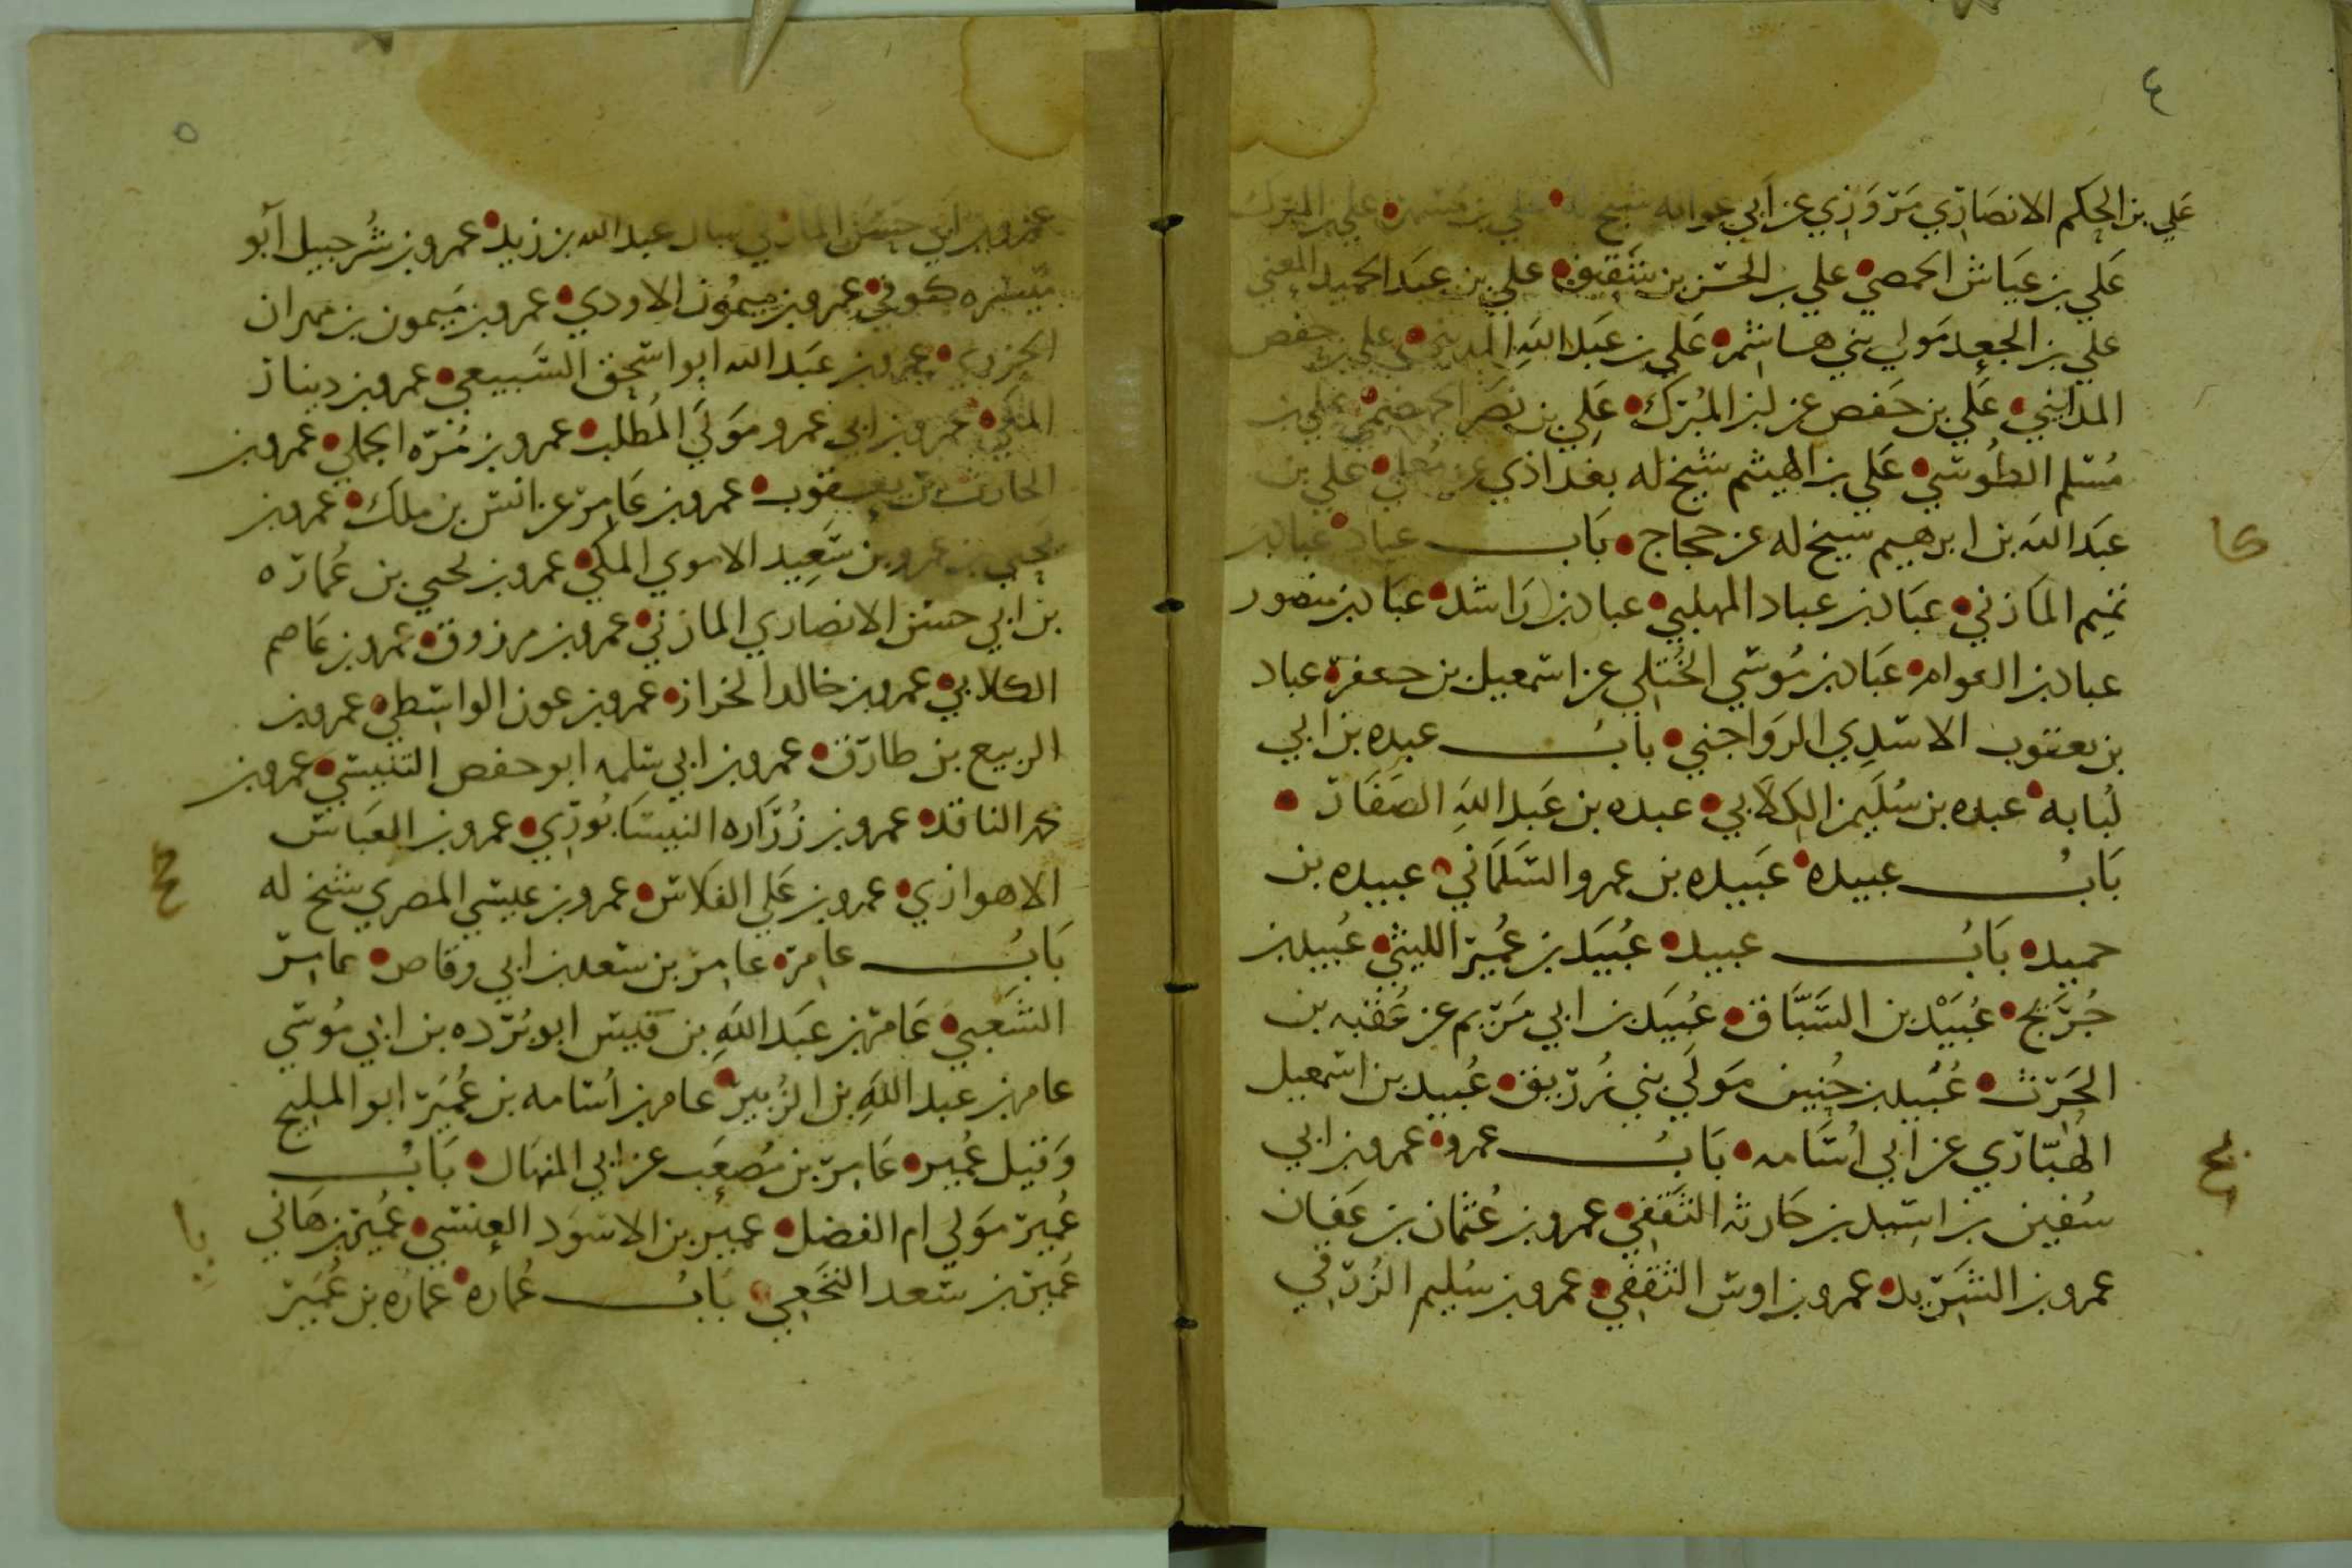 ٤
علي بن الحكم الانصاري مروزي عن ابي عوانه شيخ له علي بن علي بن المبرك
علي بن عياش الحمصي علي بن الحسن بن شقيق علي بن عبد الحميد المعني
علي بن الجعد مولي بني هاشم علي بن عبد الله المديني علي بن حفص
المدايني علي بن حفص عن ابن المبرك علي بن نصر الجهضمي علي بن
مسلم الطوسي علي بن الهيثم شيخ له بغداذي عن معلي علي بن
عبد الله بن ابرهيم شيخ له عن حجاج باب عباد عباد بن
تميم المازني عباد بن عباد المهلبي عباد بن راشد عباد بن منصور
عباد بن العوام عباد بن موسي الختلي عن اسمعيل بن جعفر عباد
بن يعقوب الاسدي الرواجني باب عبده بن ابي
لبابه عبده بن سليمن الكلابي عبده بن عبد الله الصفار
باب عبيده عبيده بن عمرو السلماني عبيده بن
حميد باب عبيد عبيد بن عمير الليثي عبيد بن
جريج عبيد بن السباق عبيد بن ابي مريم عن عقبه بن
الحرث عبيد بن حنين مولي بني زريق عبيد بن اسمعيل
الهباري عن ابي اسامه باب عمرو عمرو بن ابي
سفين بن اسيد بن حارثه الثقفي عمرو بن عثمان بن عفان
عمرو بن الشريد عمرو بن اوس الثقفي عمرو بن سليم الزرقي
٥
عمرو بن ابي حسن المازني سال عبد الله بن زيد عمرو بن شرحبيل ابو
ميسره كوفي عمرو بن ميمون الاودي عمرو بن ميمون بن مهران
الجزري عمرو بن عبد الله ابو اسحق السبيعي عمرو بن دينار
المكي عمرو بن ابي عمرو مولي المطلب عمرو بن مره الجملي عمرو بن
الحارث بن يعقوب عمرو بن عامر عن انس بن ملك عمرو بن
يحيي بن عمرو بن سعيد الاموي المكي عمرو بن يحيي بن عماره
بن ابي حسن الانصاري المازني عمرو بن مرزوق عمرو بن عاصم
الكلابي عمرو بن خالد الخراز عمرو بن عون الواسطي عمرو بن
الربيع بن طارق عمرو بن ابي سلمه ابو حفص التنيسي عمرو بن
محمد الناقد عمرو بن زراره النيسابوري عمرو بن العباس
الاهوازي عمرو بن علي الفلاس عمرو بن عيسي المصري شيخ له
باب عامر عامر بن سعد بن ابي وقاص عامر
الشعبي عامر بن عبد الله بن قيس ابو برده بن ابي موسي
عامر بن عبد الله بن الزبير عامر بن اسامه بن عمير ابو المليح
وقيل عمير عامر بن مصعب عن ابي المنهال باب
عمير مولي ام الفضل عمير بن الاسود العنسي عمير بن هاني
عمير بن سعد النخعي باب عماره عماره بن عمير